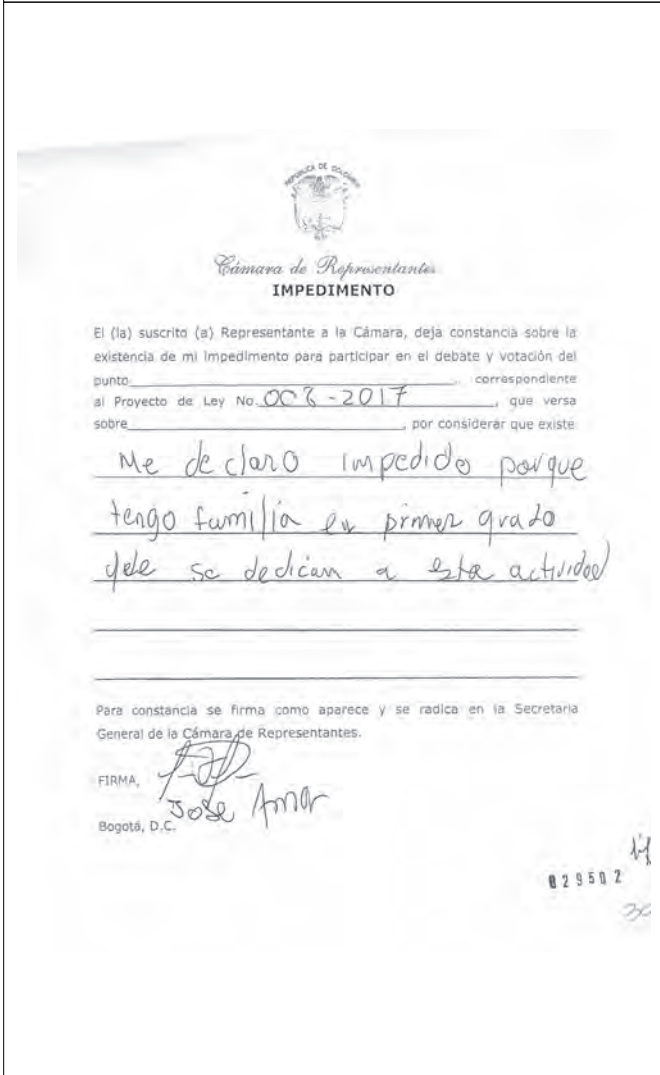 REPÚBLICA DE COLOMBIA
Cámara de Representantes
IMPEDIMENTO
El (la) suscrito (a) Representante a la Cámara, deja constancia sobre la
existencia de mi impedimento para participar en el debate y votación del
punto, correspondiente
al Proyecto de Ley No. 008-2017, que versa
sobre, por considerar que existe
Me declaro impedido porque
tengo familia en primer grado
que se dedican a esta actividad
Para constancia se firma como aparece y se radica en la Secretaria
General de la Cámara de Representantes.
FIRMA,
Jose Amar
Bogotá, D.C.
029502